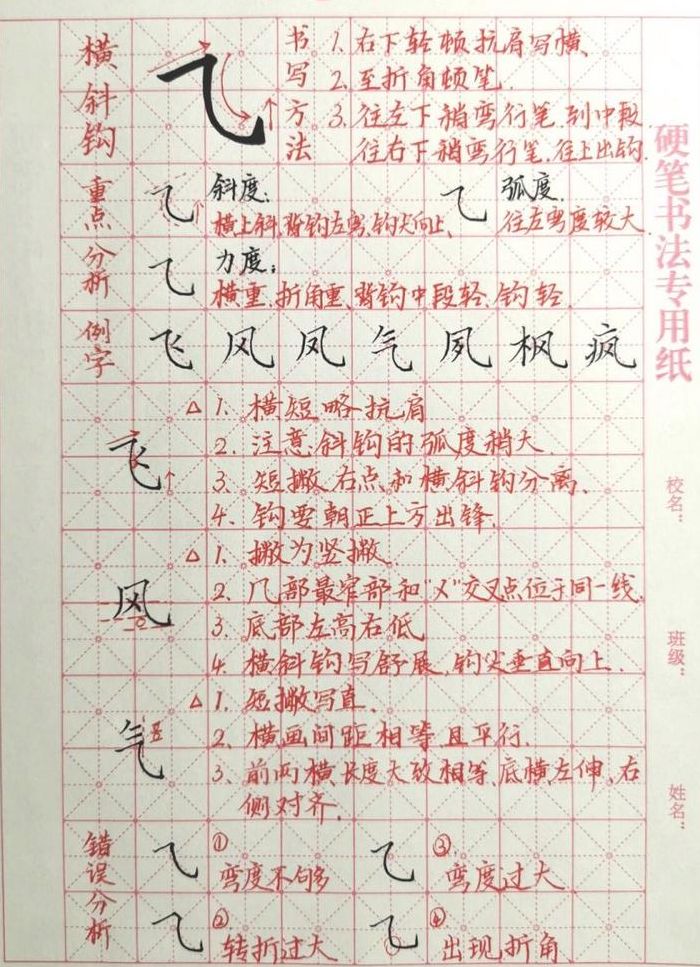 横斜钩
⺄
书写方法
1. 右下轻顿抗肩写横、
2. 至折角顿笔.
3. 往左下稍弯行笔,到中段
往右下稍弯行笔,往上出钩.
重点分析
⺄
斜度:
横上斜、背钩左弯、钩尖向上、
⺄
弧度.
往左弯度较大.
⺄
力度:
横重、折角重、背钩中段轻、钩轻.
例字
飞 风 凤 气 夙 枫 疯
飞
△ 1. 横短略抗肩
2. 注意斜钩的弧度稍大.
3. 短撇右点和横斜钩分离、
4. 钩要朝正上方出锋.
风
△ 1. 撇为竖撇
2. 几部最窄部和“㐅”交叉点位于同一线.
3. 底部左高右低
4. 横斜钩写舒展,钩尖垂直向上.
气
△ 1. 短撇写直.
2. 横画间距相等且平行.
3. 前两横长度大致相等、底横左伸,右
侧对齐.
错误分析
⺄
①
弯度不够
⺄
③
弯度过大
⺄
②
转折过大
⺄
④
出现折角
硬笔书法专用纸
校名:
班级:
姓名: